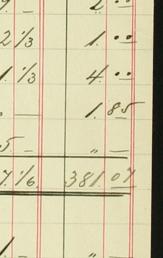 2 ..
2 1/3 1 ..
1 1/3 4 ..
— 1.85
5 — " —
7. 1/6 381.07